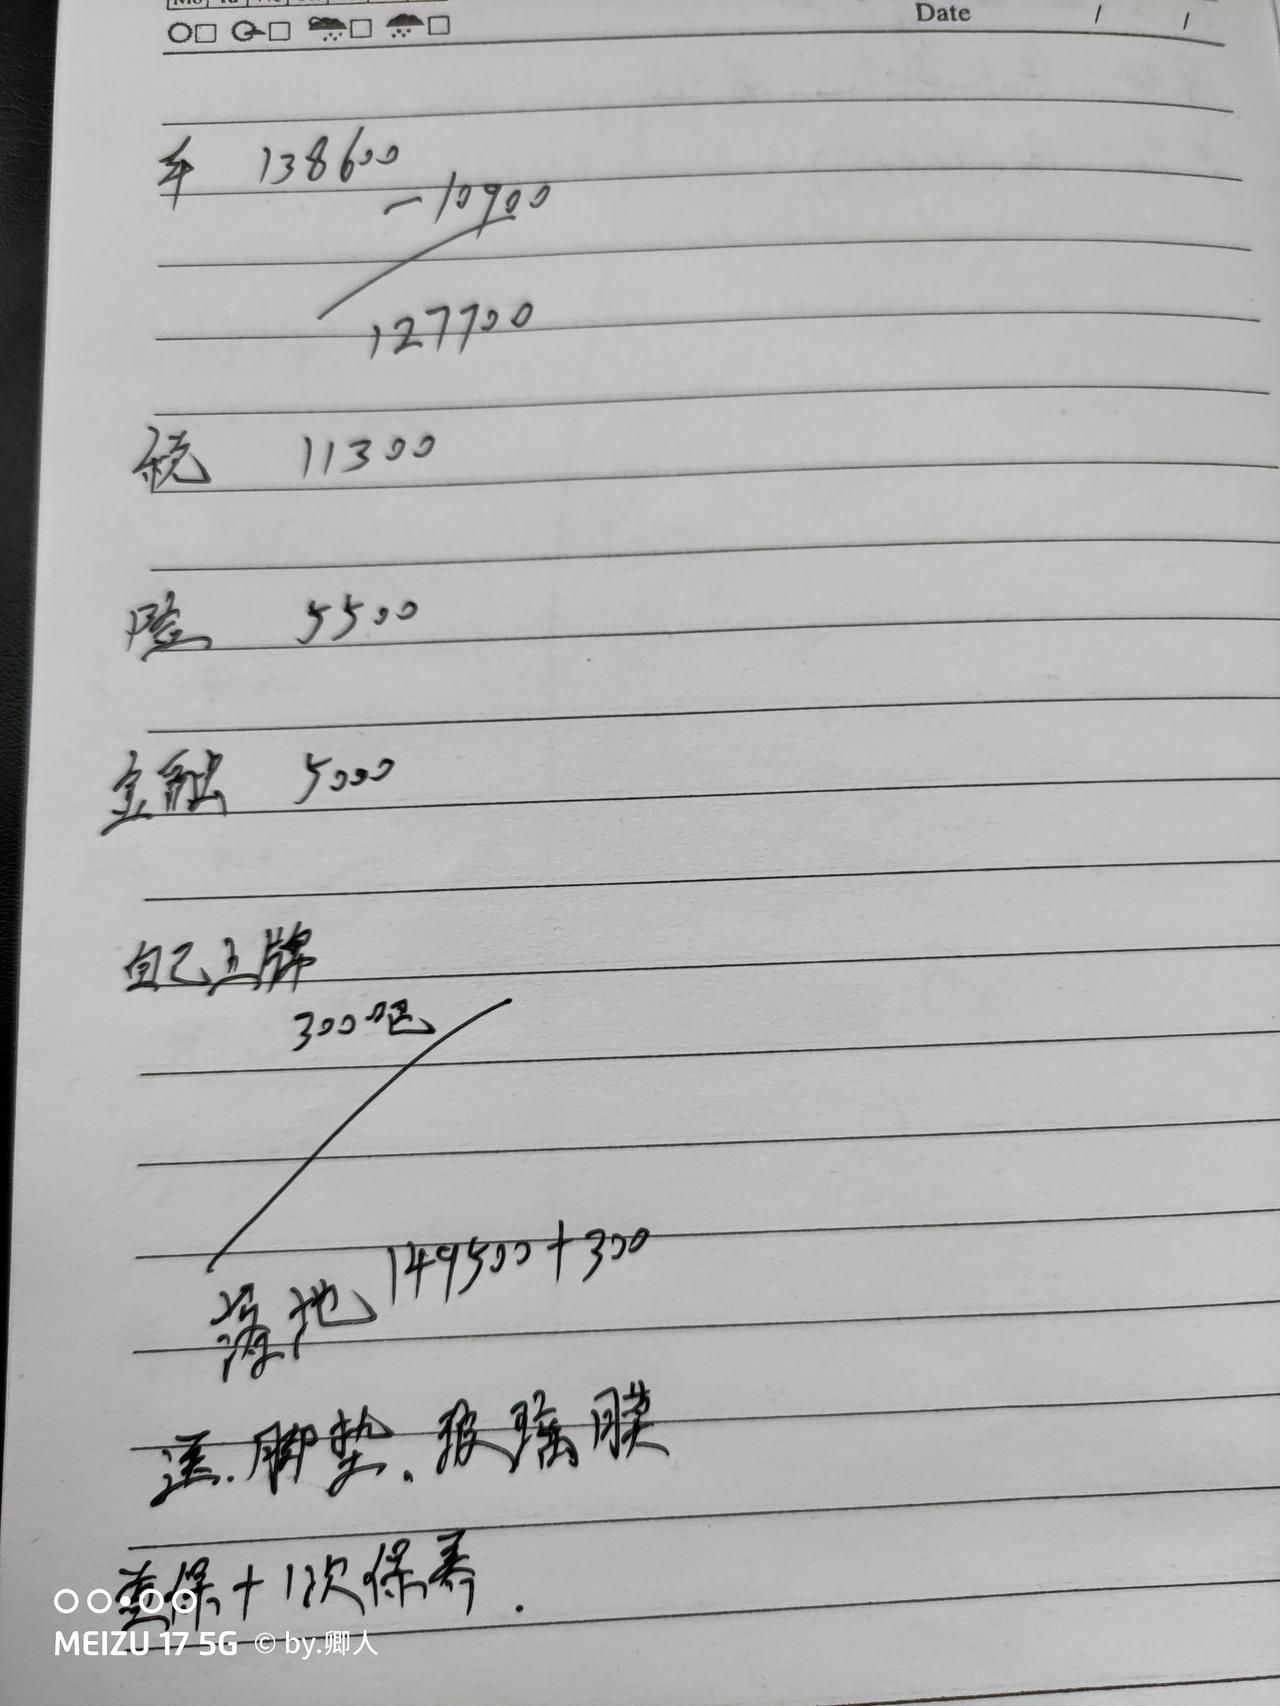 Date / /
车 138600
-10900
127700
税 11300
险 5500
金融 5000
自己上牌
300吧
落地 149500+300
送.脚垫.玻璃膜
查保+1次保养.
MEIZU 17 5G © by.卿人